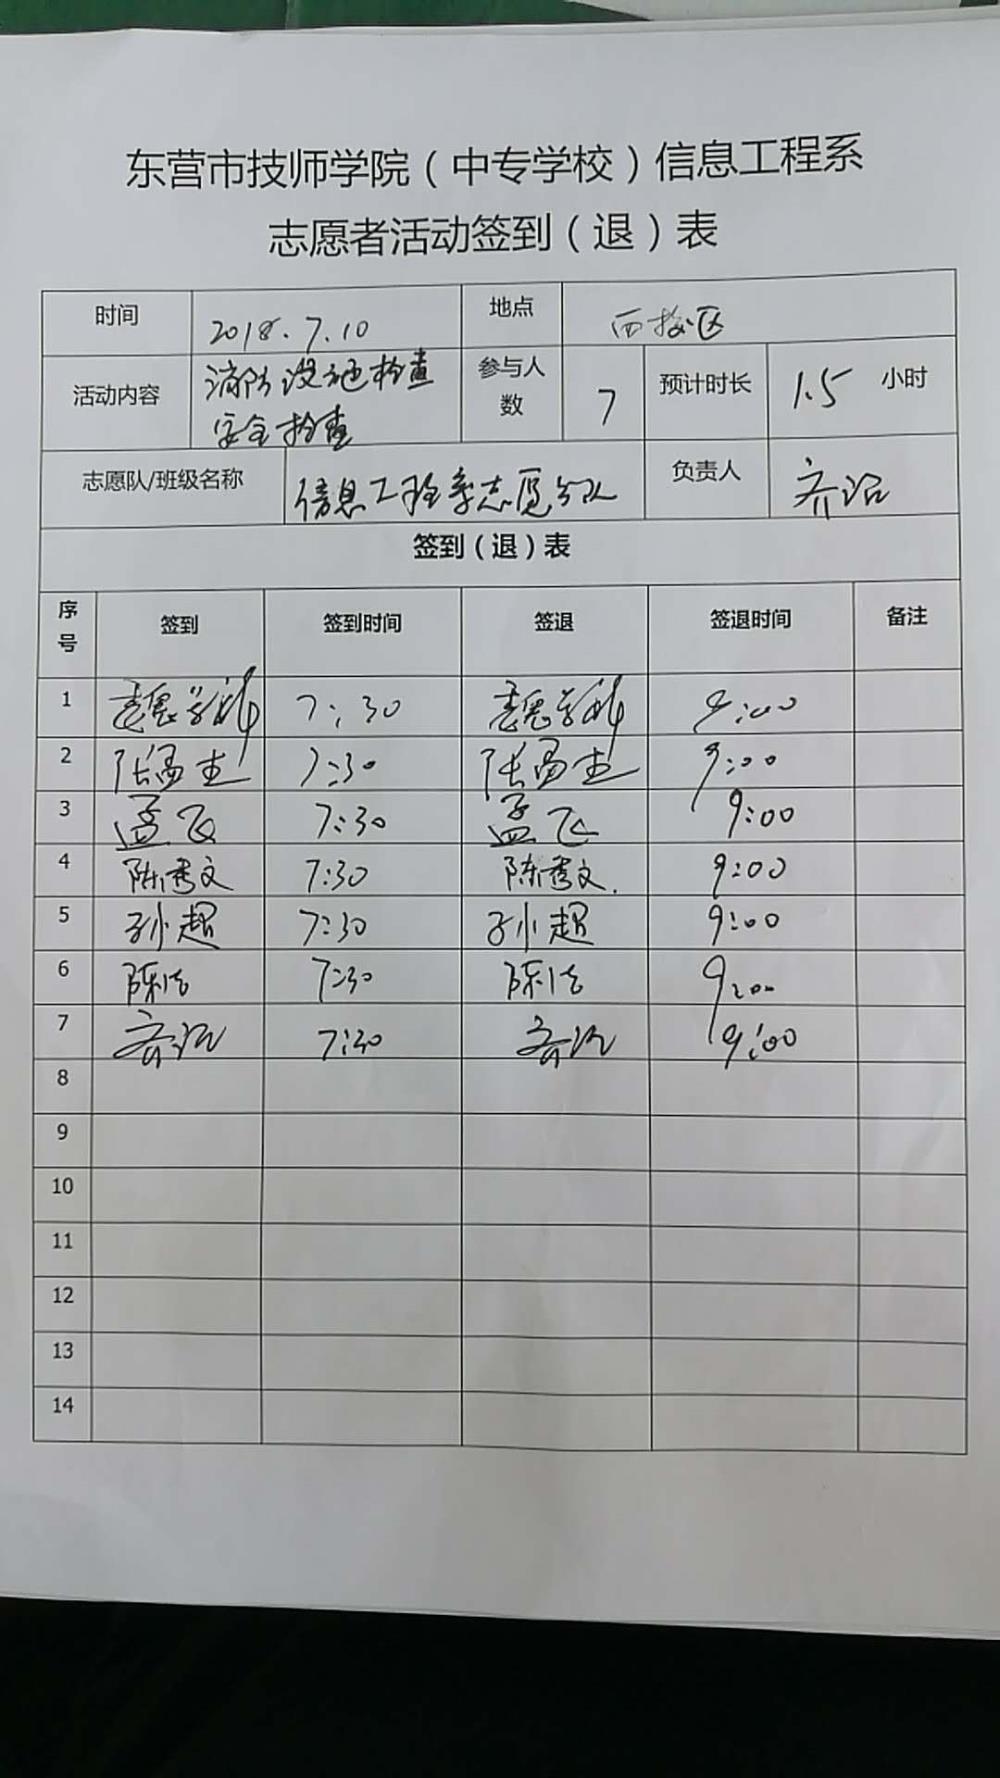 东营市技师学院（中专学校）信息工程系
志愿者活动签到（退）表
时间 2018.7.10 地点 西校区
活动内容 消防设施检查 安全检查 参与人数 7 预计时长 1.5 小时
志愿队/班级名称 信息工程系志愿分队 负责人 齐沿
签到（退）表
序号 签到 签到时间 签退 签退时间 备注
1 魏学科 7:30 魏学科 9:00
2 张 7:30 张 9:00
3 孟飞 7:30 孟飞 9:00
4 陈秀文 7:30 陈秀文 9:00
5 孙超 7:30 孙超 9:00
6 陈洁 7:30 陈洁 9:00
7 齐沿 7:30 齐沿 9:00
8
9
10
11
12
13
14